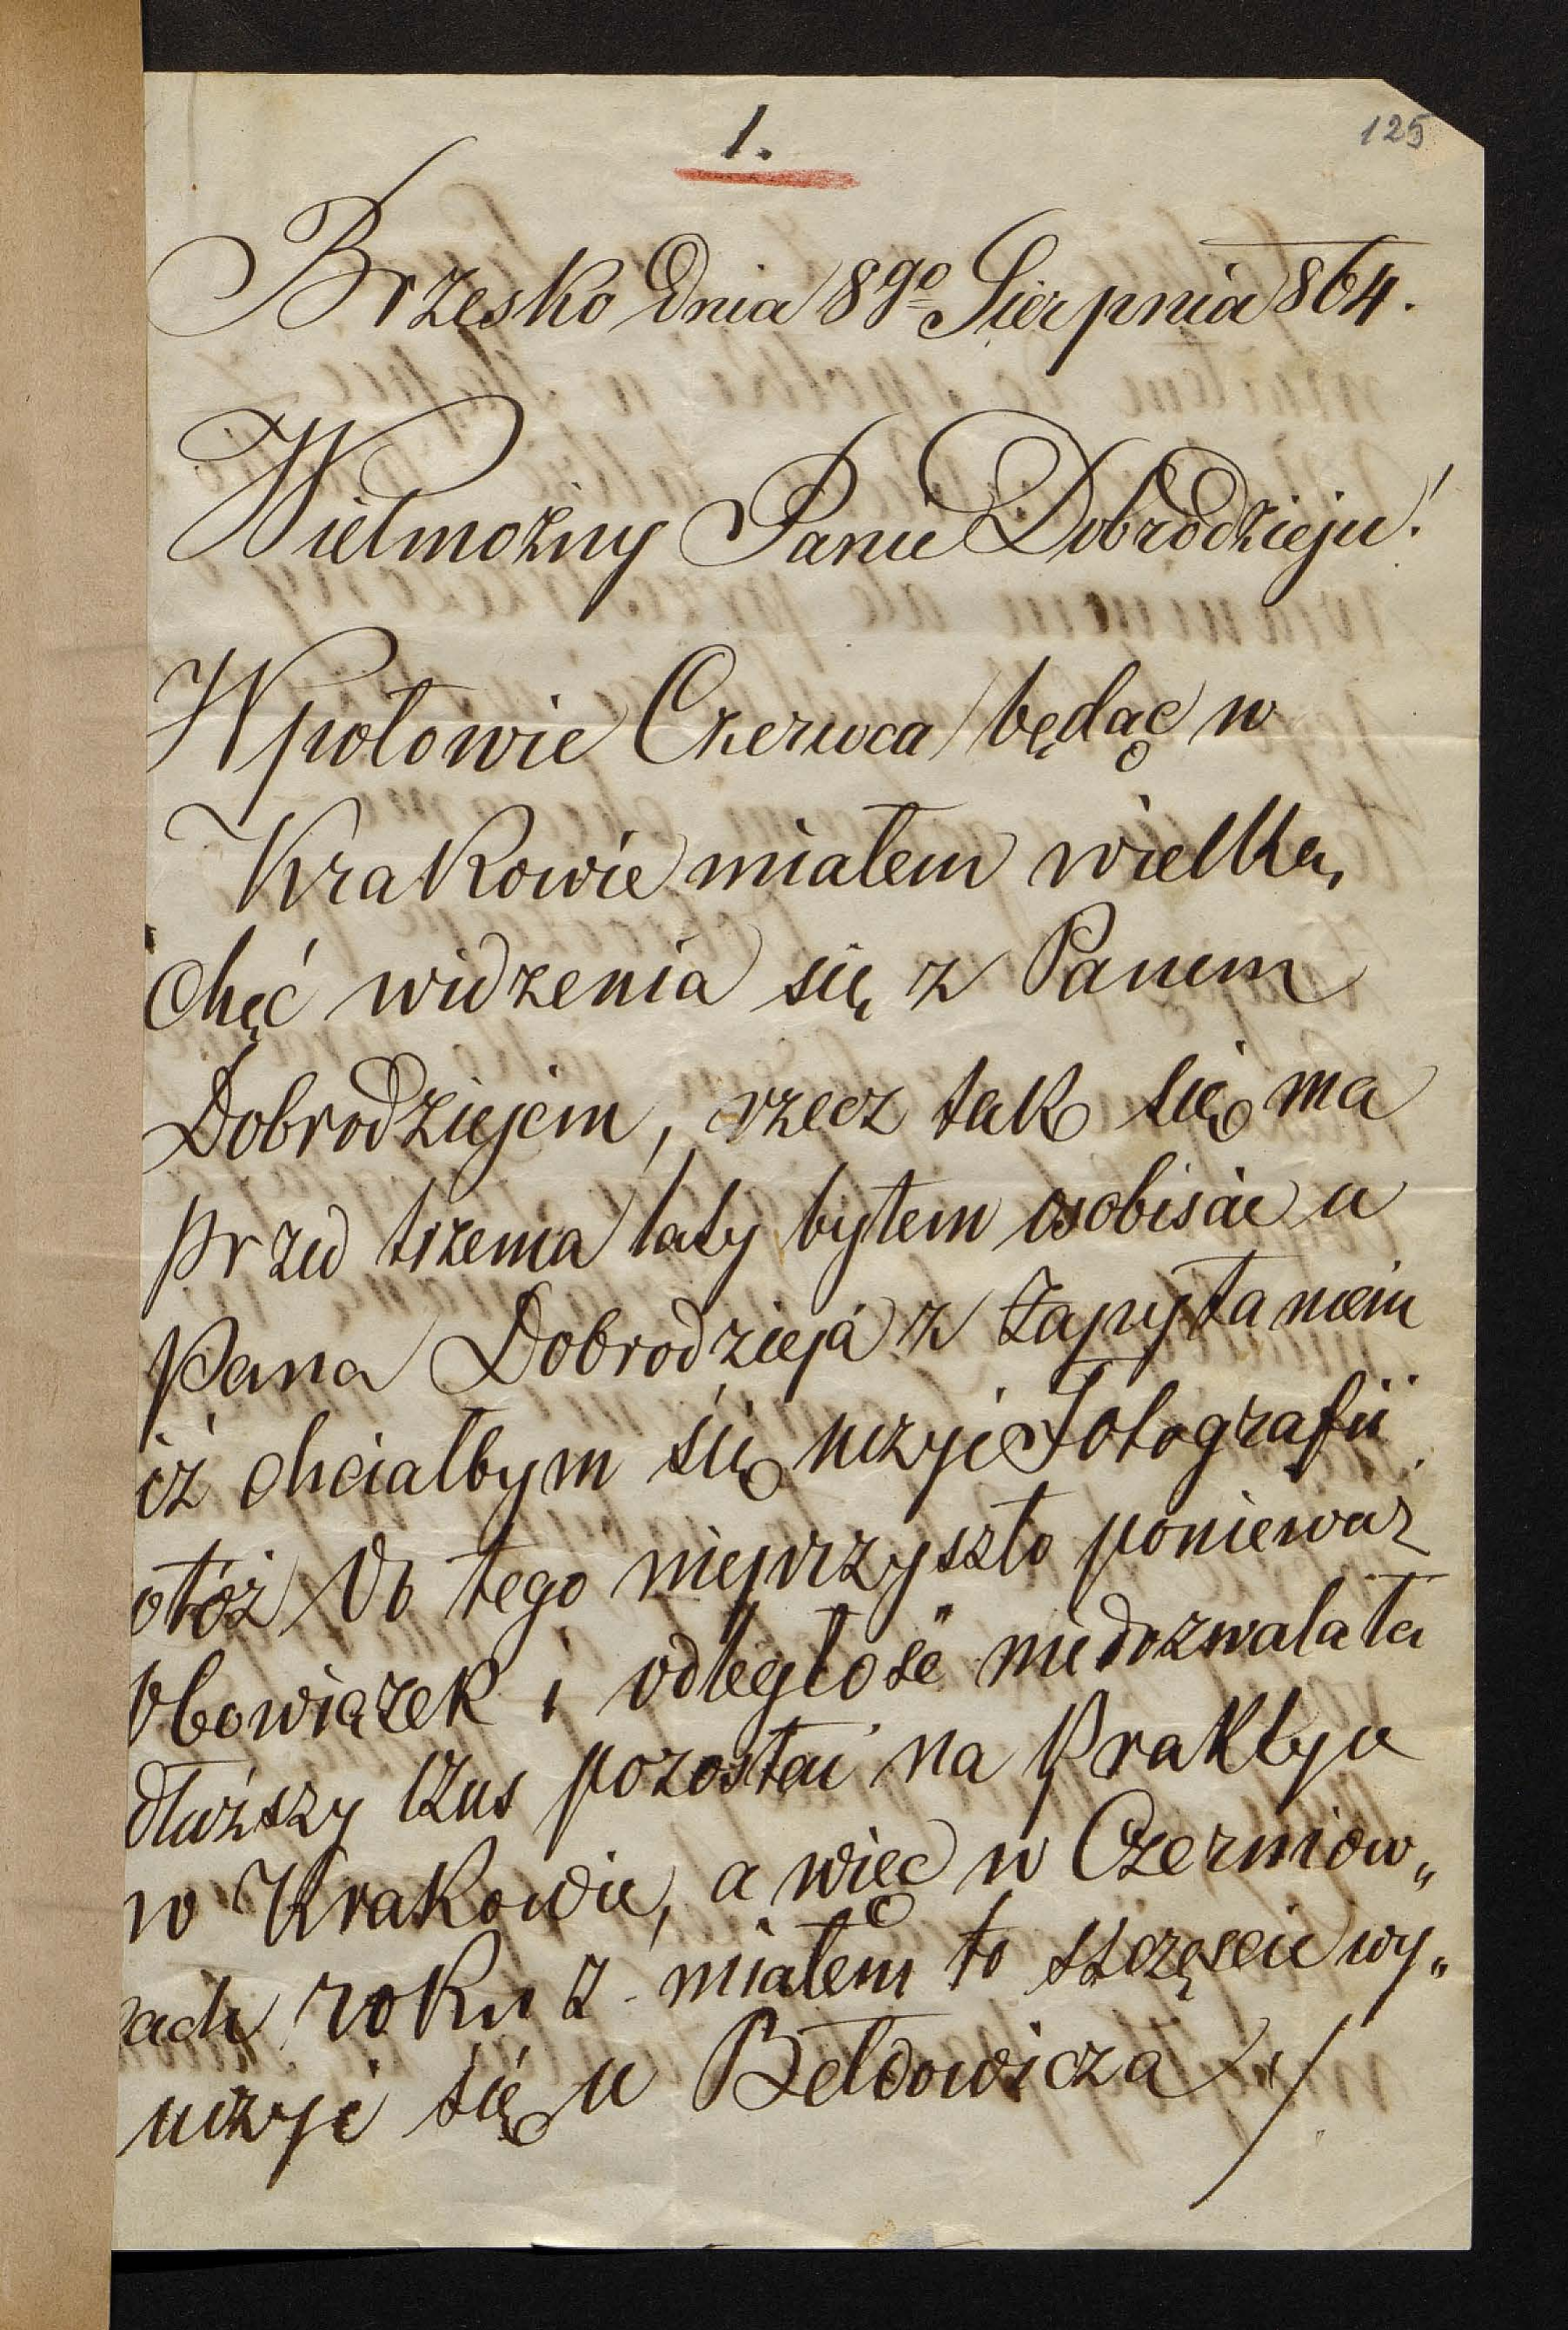 1.
125
Brzesko dnia 8go Sierpnia 864.
Wielmożny Panie Dobrodzieju!
W połowie Czerwca będąc w
Krakowie miałem wielką
chęć widzenia się z Panem
Dobrodziejem, rzecz tak się ma
przed trzema laty byłem osobiście u
Pana Dobrodzieja z zapytaniem
iż chciałbym się uczyć Fotografii
otóż do tego nieprzyszło ponieważ
obowiązek i odległość niedozwalała
dłuższy czas pozostać na praktyce
w Krakowie, a więc w Czerniow„
cach roku z. miałem to szczęście wy„
uczyć się u Bełdowicza